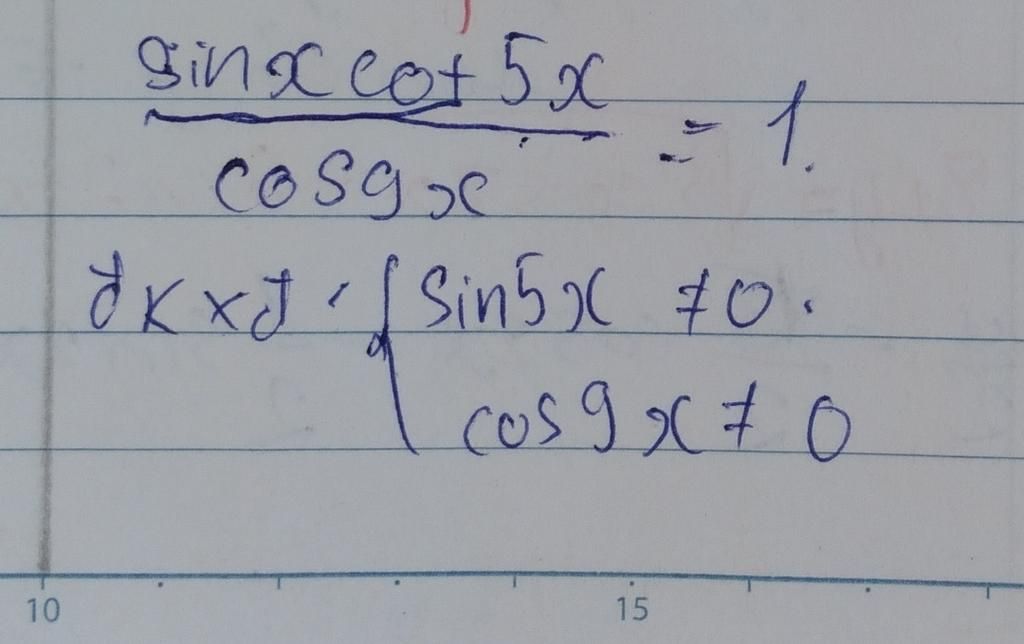 sinx cot 5x
= 1.
cos9x
đkxđ: { sin5x ≠ 0.
cos9x ≠ 0
10 15